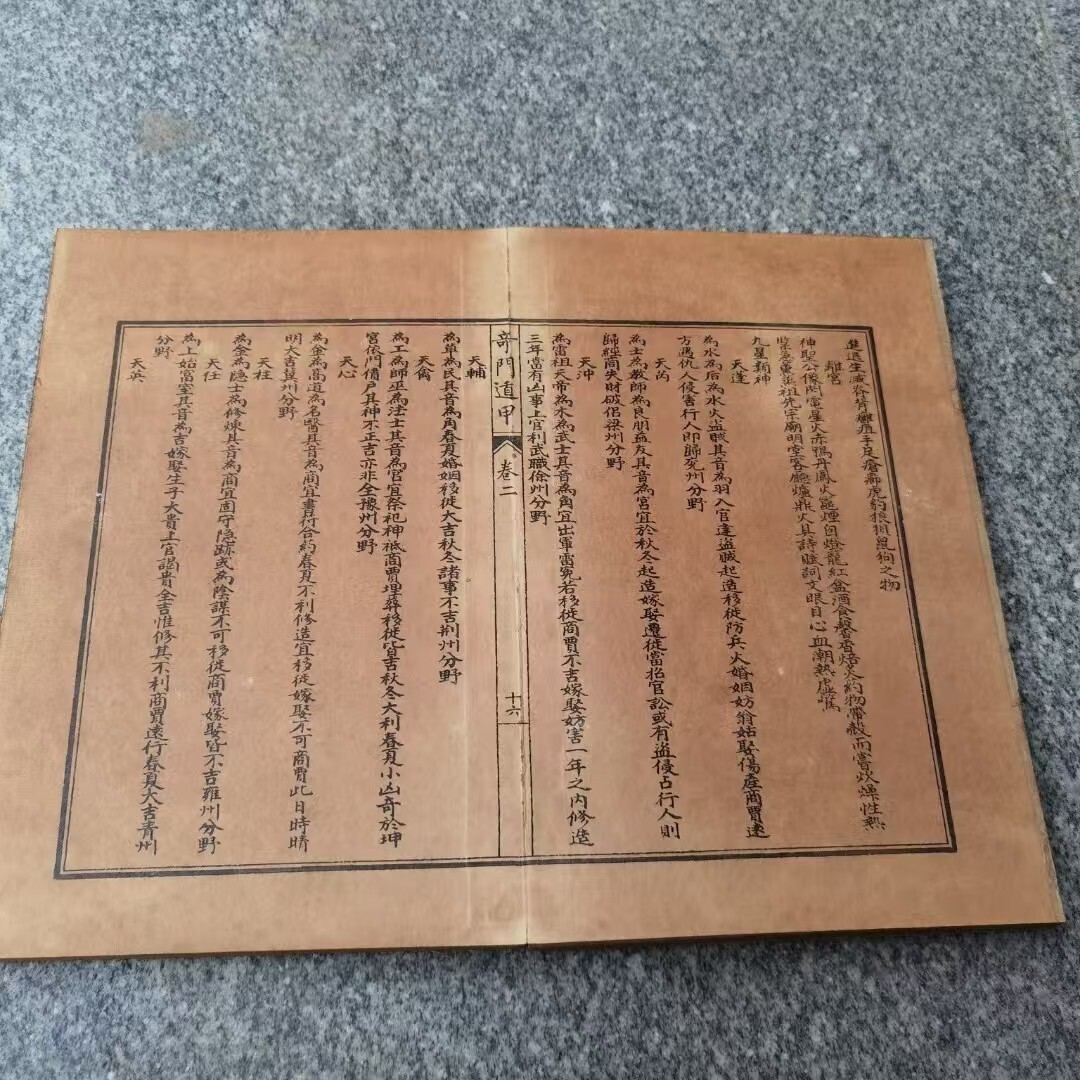 進退生滅脊背癱疽手足瘡癤虎豹狼狽鼠狗之物
離宮
神聖公像陛當星火赤鴨丹鳳火龜煙囪燈籠紅盆酒食馨香焙炙約物帶殼而嘗炊燥性熱
祖先宗廟明堂客廳爐鼎火具詩賦詞文眼目心血潮熱虛
九星類神
天蓬
為水為后為水火盜賊其音為羽入官逢盜賊起造移徙防兵火婚姻妨翁姑娶傷產商賈遠
方遇仇人侵害行人即歸兖州分野
天芮
為土為教師為良朋益友其音為宮宜於秋冬起造嫁娶遷徙當招官訟或有盜侵占行人則
歸經商失財破侶梁州分野
天沖
為雷祖天帝為木為武士其音為角宜出軍雷冤若移徙商賈不吉嫁娶妨害一年之內修造
三年當有凶事上官利武職徐州分野
奇門遁甲
卷二
十六
天輔
為草為民其音為角春夏婚姻移徙大吉秋冬諸事不吉荆州分野
天禽
為工為師巫為法士其音為宮宜祭祀神祇商賈埋葬移徙皆吉秋冬大利春夏小凶奇於坤
宮依門借戶其神不正吉亦非全豫州分野
天心
為金為高道為名醫其音為商宜書符合約春夏不利修造宜移徙嫁娶不可商賈此日時晴
明大吉冀州分野
天柱
為金為隐士為修煉其音為商宜固守隐跡或為陰謀不可移徙商賈嫁娶皆不吉雍州分野
天任
為土始富室其音為吉嫁娶生子大貴上官謁貴全吉惟修其不利商賈遠行春夏大吉青州
分野
天英